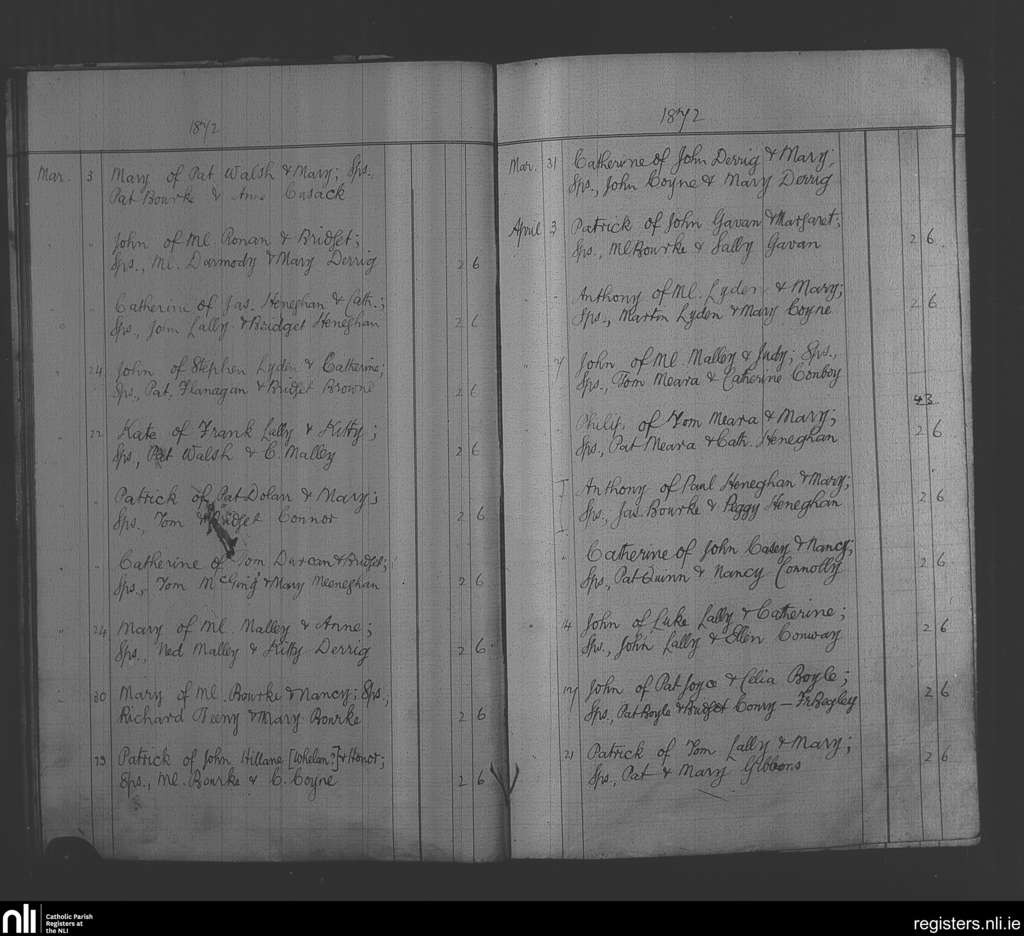 1872
Mar. 3 Mary of Pat Walsh & Mary; Sps.,
Pat Bourke & Anne Cusack
" " John of Ml. Ronan & Bridget;
Sps., Ml. Darmody & Mary Derrig 2 6
" " Catherine of Jas. Heneghan & Cath.;
Sps., John Lally & Bridget Heneghan 2 6
" 24 John of Stephen Lyden & Catherine;
Sps., Pat. Flanagan & Bridget Browne 2 6
" 22 Kate of Frank Lally & Kitty;
Sps., Pat Walsh & C. Malley 2 6
" " Patrick of Pat Dolan & Mary;
Sps., Tom & Bridget Connor 2 6
" " Catherine of Tom Durcan & Bridget;
Sps., Tom & Mary Heneghan 2 6
" 24 Mary of Ml. Malley & Anne;
Sps., Ned Malley & Kitty Derrig 2 6
" 30 Mary of Ml. Bourke & Nancy; Sps.,
Richard Feeny & Mary Bourke 2 6
" 29 Patrick of John Hillane [Whelan?] & Honor;
Sps., Ml. Bourke & C. Coyne 2 6
1872
Mar. 31 Catherine of John Derrig & Mary;
Sps., John Coyne & Mary Derrig
April 3 Patrick of John Gavan & Margaret;
Sps., Ml Bourke & Sally Gavan 2 6
" " Anthony of Ml. Lyden & Mary;
Sps., Martin Lyden & Mary Coyne 2 6
" 7 John of Ml. Malley & Judy; Sps.,
Sps., Tom Meara & Catherine Conboy
43
Philip of Tom Meara & Mary;
Sps., Pat Meara & Cath. Heneghan 2 6
Anthony of Paul Heneghan & Mary;
Sps., Jas. Bourke & Peggy Heneghan 2 6
" Catherine of John Casey & Nancy;
Sps., Pat Quinn & Nancy Connolly 2 6
" 14 John of Luke Lally & Catherine;
Sps., John Lally & Ellen Conway 2 6
17 John of Pat Joyce & Celia Boyle;
Sps., Pat Boyle & Bridget Conry — Fr Bagley 2 6
21 Patrick of Tom Lally & Mary;
Sps., Pat & Mary Gibbons 2 6
nli Catholic Parish
Registers at
the NLI
registers.nli.ie